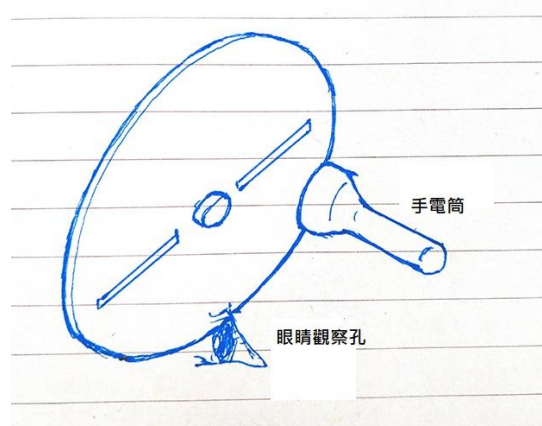 手電筒
眼睛觀察孔